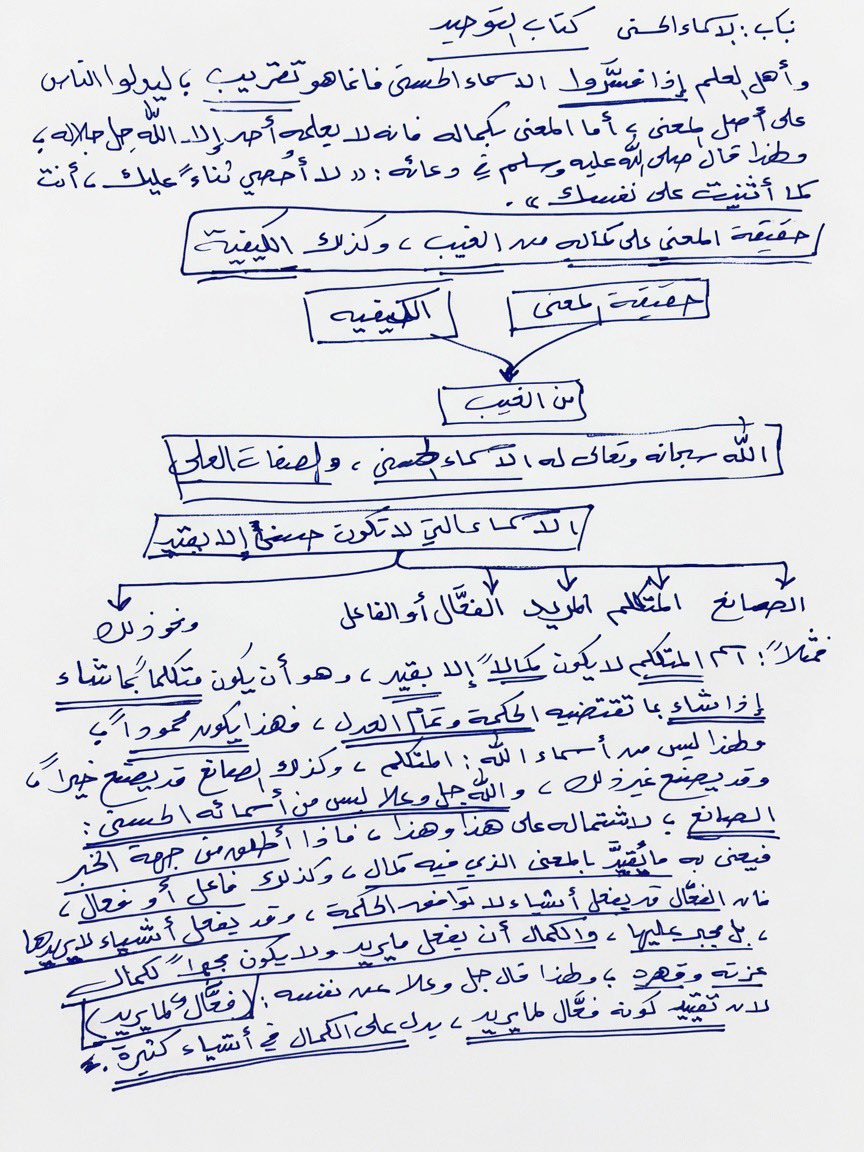 باب: الاسماء الحسنى كتاب التوحيد
وأهل العلم إذا فسَّروا الاسماء الحسنى فانما هو تقريب ؛ ليدلوا الناس
على أصل المعنى ؛ أما المعنى بكماله فانه لا يعلمه أحد إلا الله جل جلاله ؛
ولهذا قال صلى الله عليه وسلم في دعائه : «لا أُحصي ثناءً عليك ، أنت
كما أثنيت على نفسك» .
حقيقة المعنى على كماله من الغيب ، وكذلك الكيفية
حقيقة المعنى الكيفيه
من الغيب
الله سبحانه وتعالى له الاسماء الحسنى ، والصفات العلى
الاسماء التي لا تكون حسنى إلا بقيد
الصانع المتكلم المريد الفعَّال أو الفاعل ونحو ذلك
فمثلاً : اسم المتكلم لا يكون كمالاً إلا بقيد ، وهو أن يكون متكلماً بما شاء
إذا شاء بما تقتضيه الحكمة وتمام العدل ، فهذا يكون محموداً ؛
ولهذا ليس من أسماء الله : المتكلم ، وكذلك الصانع قد يصنع خيراً ،
وقد يصنع غير ذلك ، والله جل وعلا ليس من أسمائه الحسنى :
الصانع ؛ لاشتماله على هذا وهذا ، فاذا أطلق من جهة الخبر
فيعنى به ما يُقيَّد بالمعنى الذي فيه كمال ، وكذلك فاعل أو فعال ،
فان الفعَّال قد يفعل أشياء لا توافق الحكمة ، وقد يفعل أشياء لا يريدها
، بل مجبر عليها ، والكمال أن يفعل ما يريد ولا يكون مجبراً لكمال
عزته وقهره ؛ ولهذا قال جل وعلا عن نفسه : (فعَّال لما يريد)
لان تقييد كونه فعَّال لما يريد ، يدل على الكمال في أشياء كثيرة .